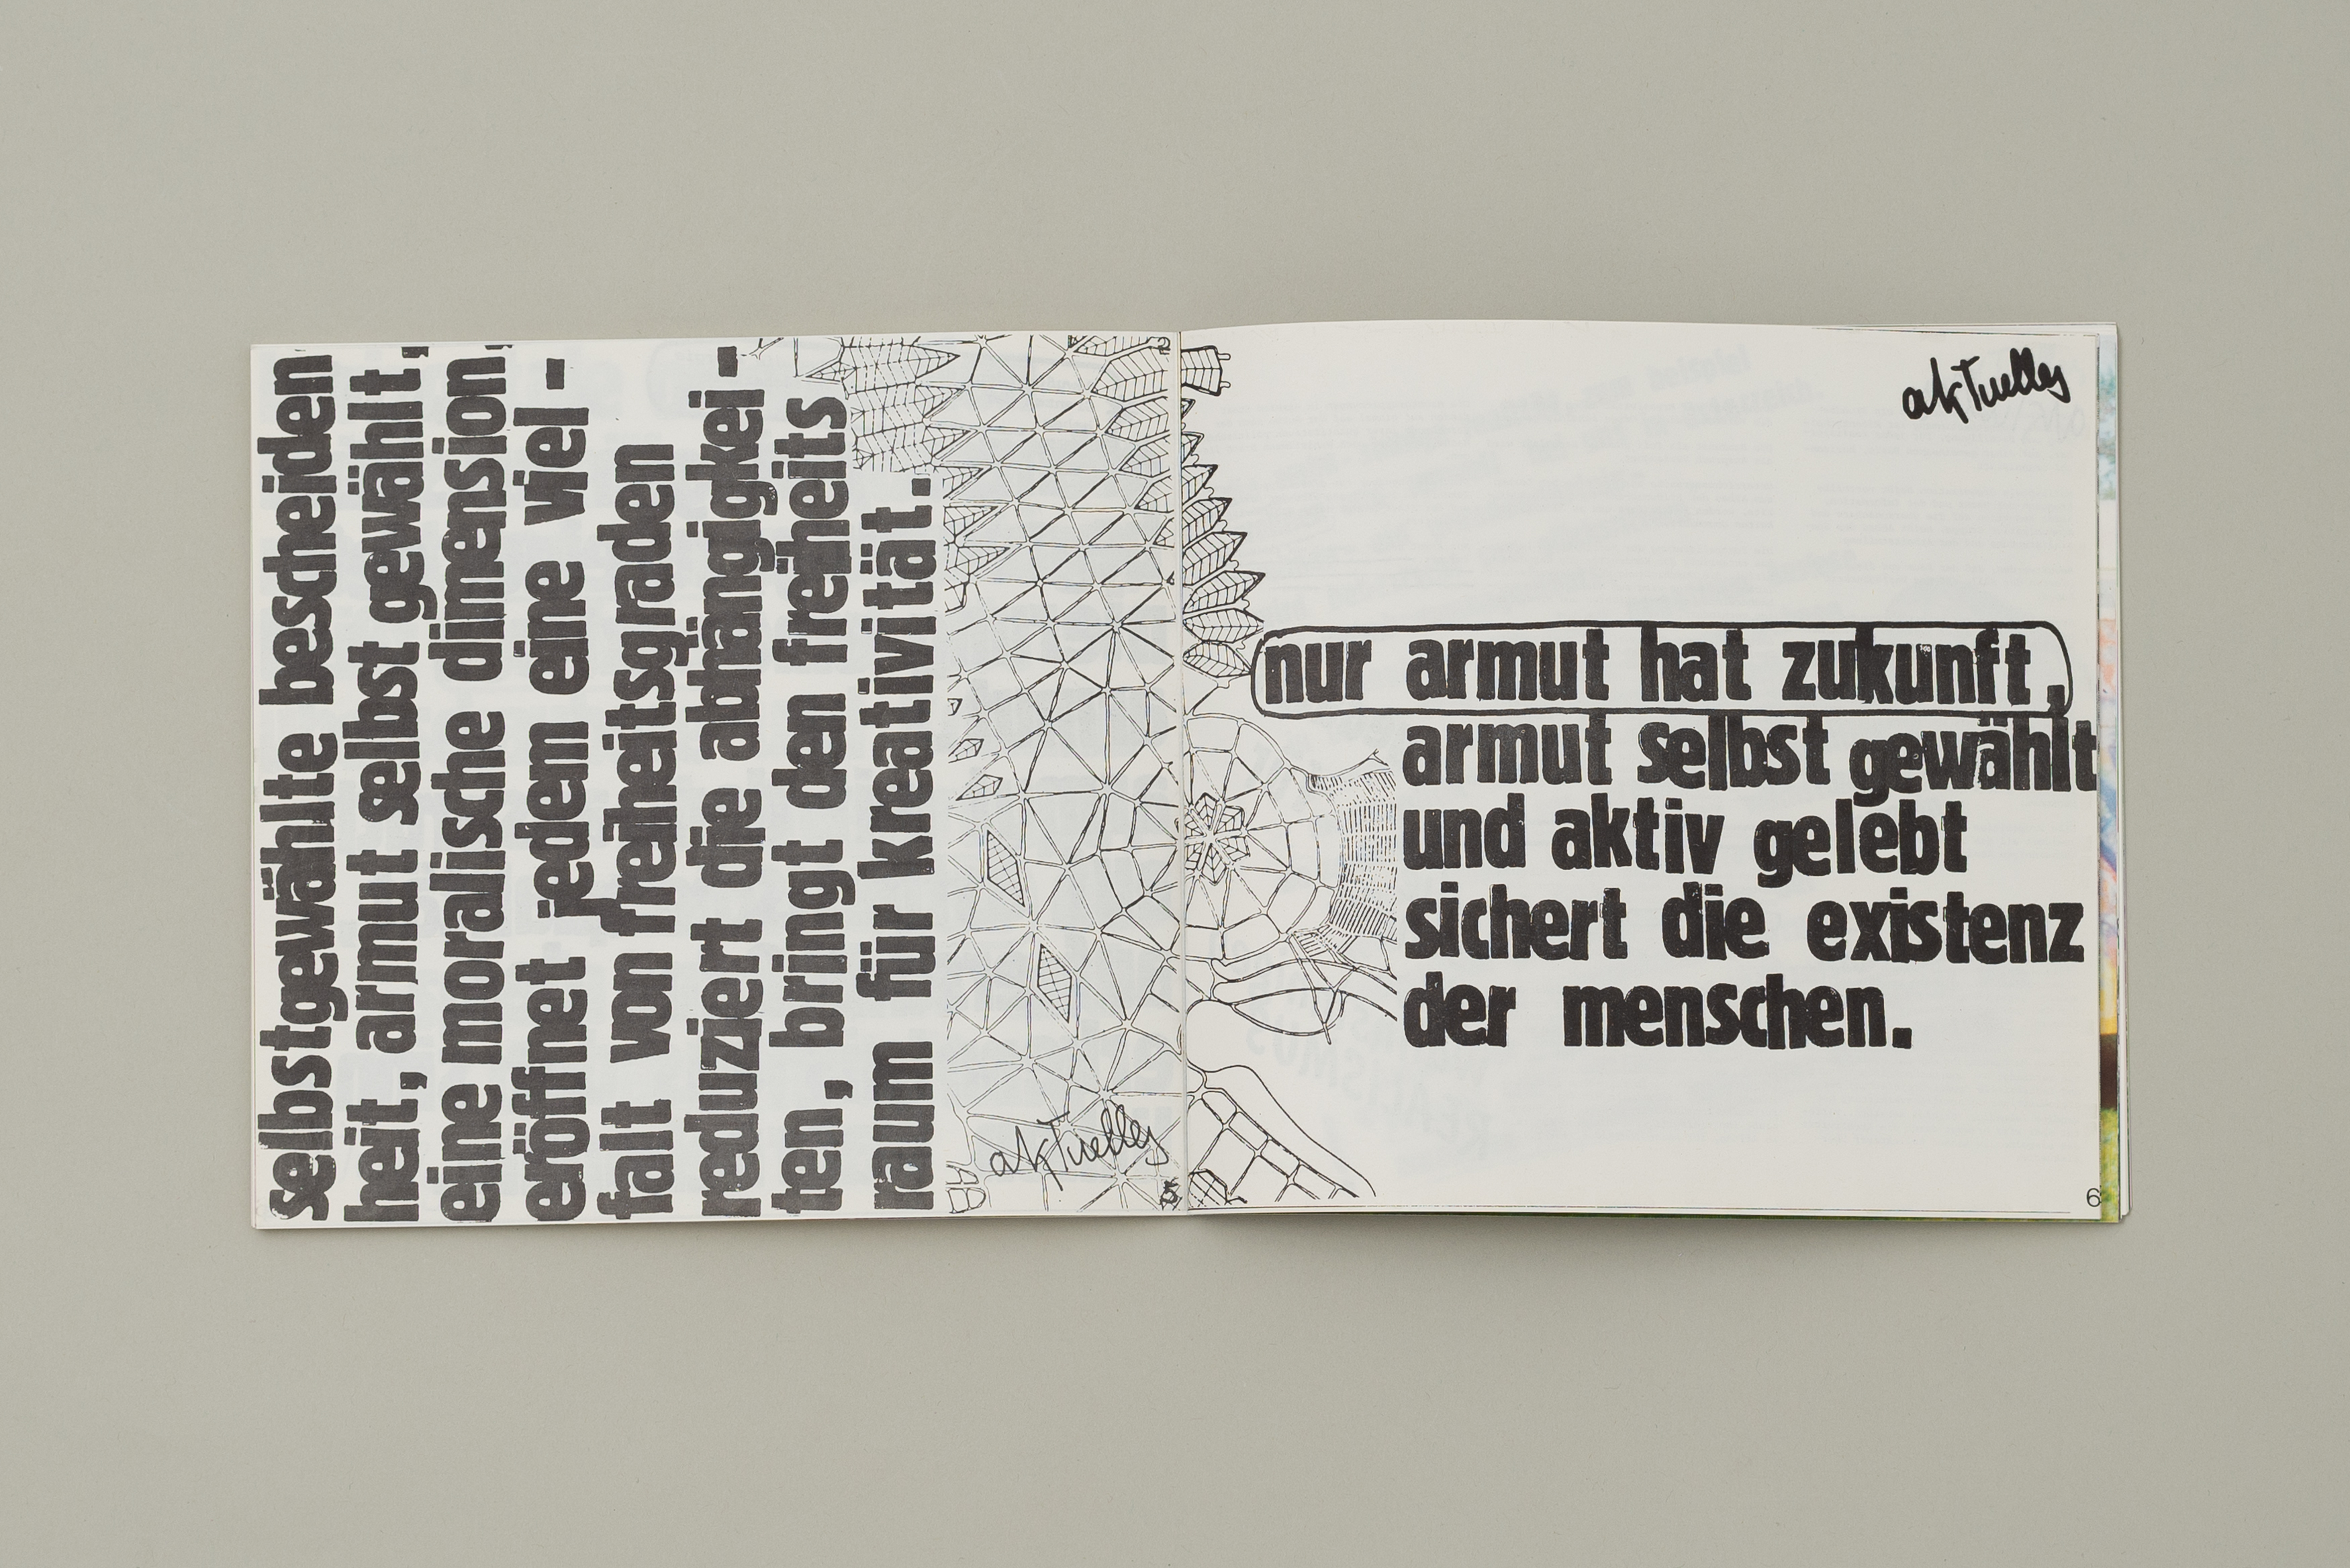 selbstgewählte bescheiden
heit, armut selbst gewählt,
eine moralische dimension,
eröffnet jedem eine viel-
falt von freiheitsgraden
reduziert die abhängigkei-
ten, bringt den freiheits
raum für kreativität.
aktuelles
5
aktuelles
nur armut hat zukunft,
armut selbst gewählt
und aktiv gelebt
sichert die existenz
der menschen.
6